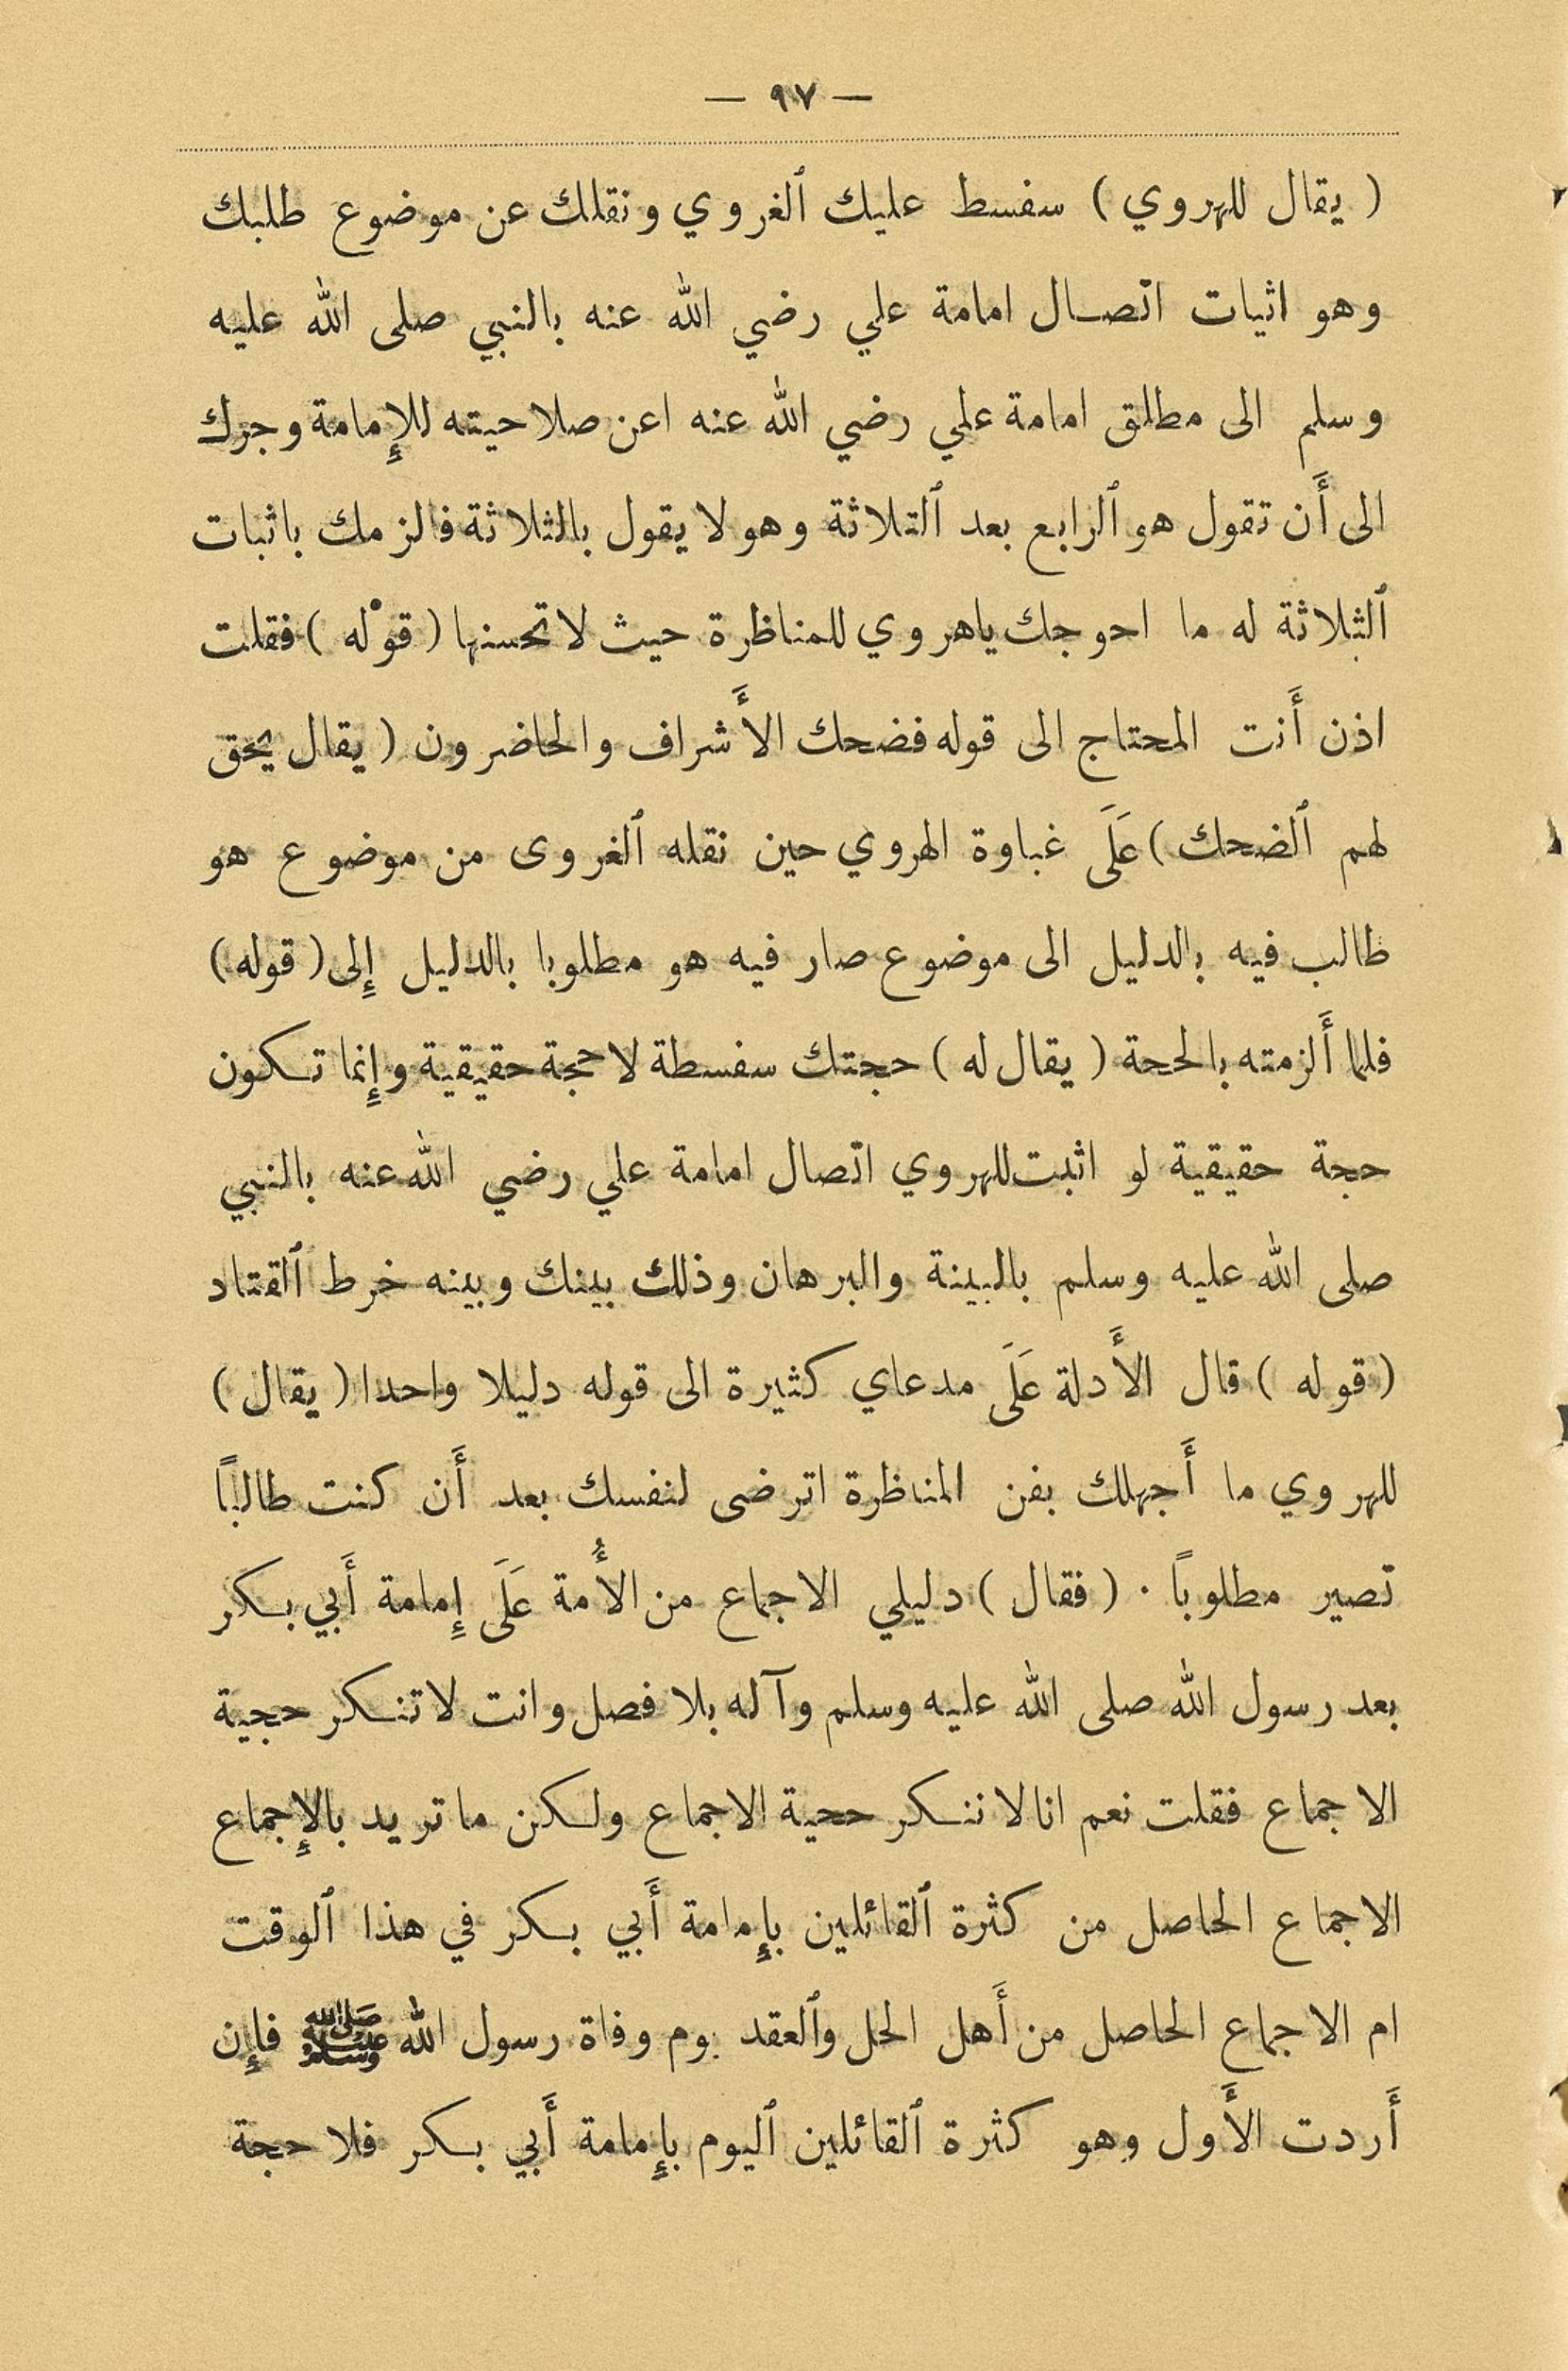 — ٩٧ —
( يقال للهروي ) سفسط عليك ٱلغروي ونقلك عن موضوع طلبك
وهو اثبات اتصـال امامة علي رضي الله عنه بالنبي صلى الله عليه
وسلم الى مطلق امامة علي رضي الله عنه اعن صلاحيته للإِمامة وجرك
الى أَن تقول هو ٱلرابع بعد ٱلتلاثة وهو لا يقول بالثلاثة فالزمك باثبات
ٱلثلاثة له ما احوجك ياهروي للمناظرة حيث لا تحسنها ( قوْله ) فقلت
اذن أَنت المحتاج الى قوله فضحك الأَشراف والحاضرون ( يقال يحق
لهم ٱلضحك ) عَلَى غباوة الهروي حين نقله ٱلغروى من موضوع هو
طالب فيه بالدليل الى موضوع صار فيه هو مطلوبا بالدليل إِلى ( قوله )
فلما أَلزمته بالحجة ( يقال له ) حجتك سفسطة لا حجة حقيقية وإِنما تـكون
حجة حقيقية لو اثبت للهروي اتصال امامة علي رضي الله عنه بالنبي
صلى الله عليه وسلم بالبينة والبرهان وذلك بينك وبينه خرط ٱلقتاد
( قوله ) قال الأَدلة عَلَى مدعاي كثيرة الى قوله دليلا واحدا ( يقال )
للهروي ما أَجهلك بفن المناظرة اترضى لنفسك بعد أَن كنت طالباً
تصير مطلوباً . ( فقال ) دليلي الاجماع من الأُمة عَلَى إِمامة أَبي بـكر
بعد رسول الله صلى الله عليه وسلم وآله بلا فصل وانت لا تنـكر حجية
الاجماع فقلت نعم انا لا ننـكر حجية الاجماع ولـكن ما تريد بالإِجماع
الاجماع الحاصل من كثرة ٱلقائلين بإِمامة أَبي بـكر في هذا ٱلوقت
ام الاجماع الحاصل من أَهل الحل وٱلعقد يوم وفاة رسول الله ﷺ فإِن
أَردت الأَول وهو كثرة ٱلقائلين ٱليوم بإِمامة أَبي بـكر فلا حجة